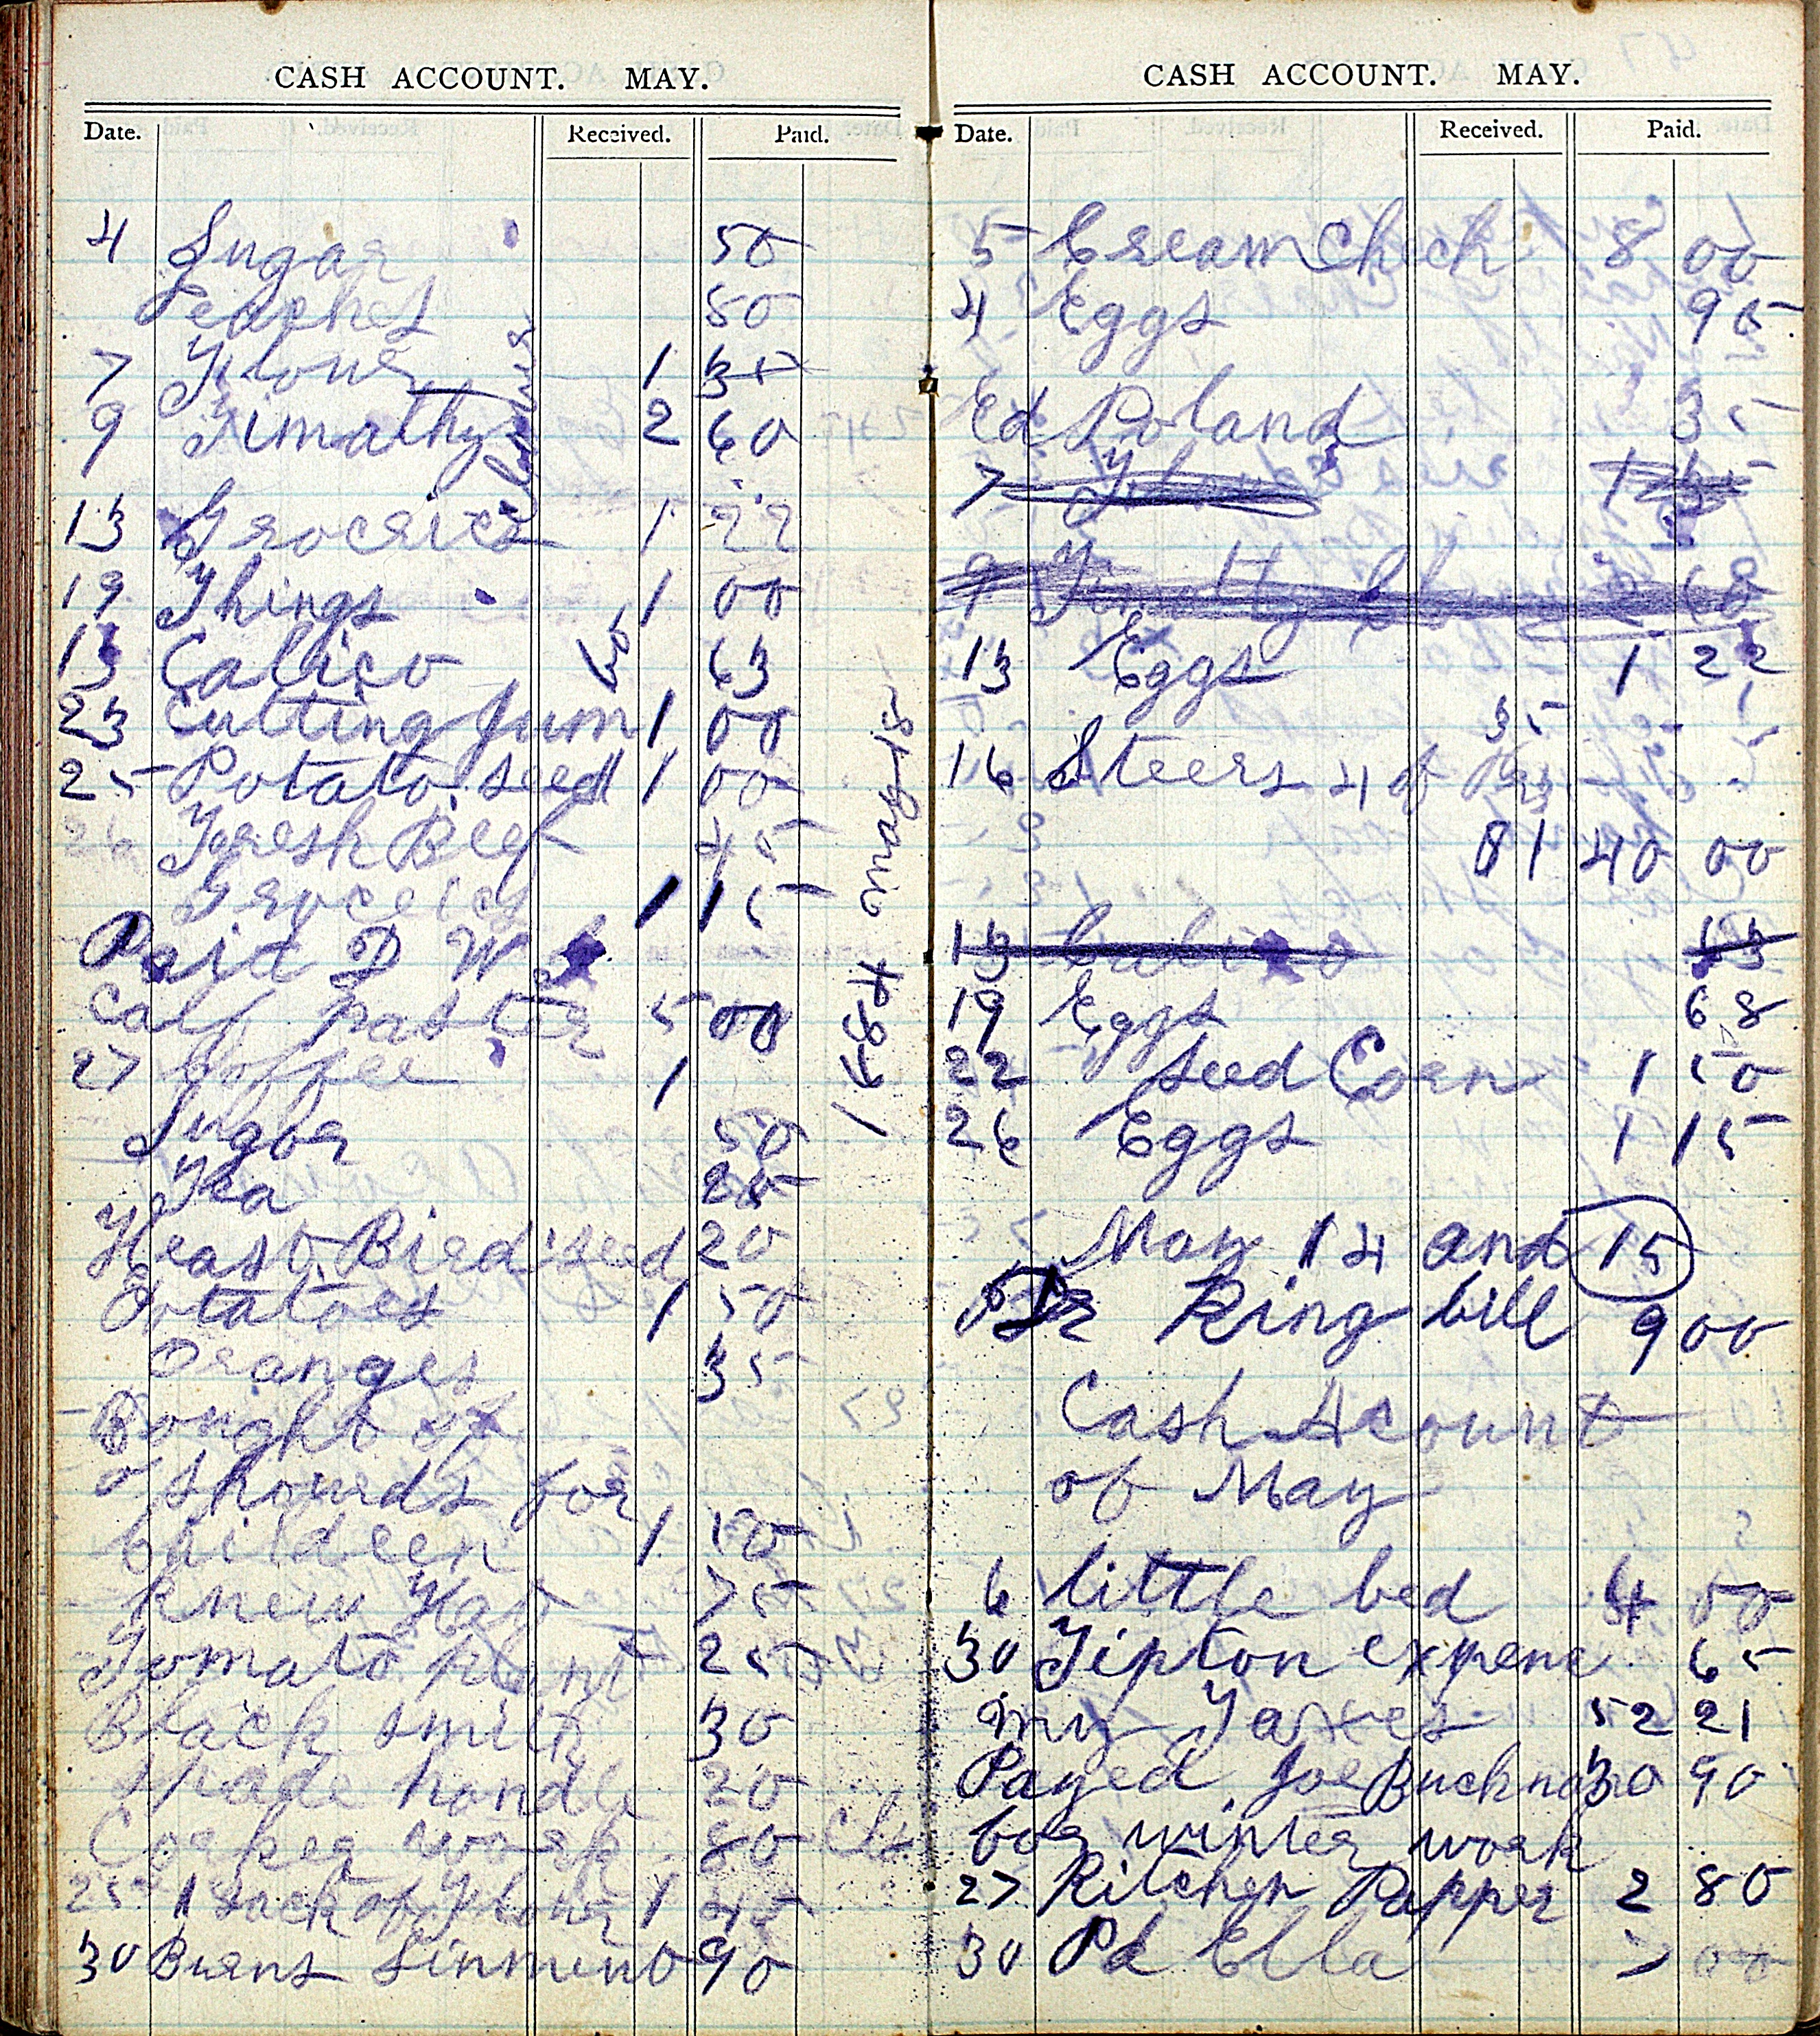 CASH ACCOUNT. MAY.
Date. Received. Paid.
4 Sugar 50
Peaches 50
7 Flour 1 35
9 Timathy 2 60
13 Groceries 1 22
19 Things 1 00
13 Calico 63
23 Cutting Jum 1 00
25 Potato seed 1 00
26 Fresh Beef 45
Groceies 1 15
Paid D W
Calf Paster 5 00
27 Coffee 1
Sugor 50
Tea 25
Yeast Bird seed 20
Potatoes 1 50
Oranges 35
Bought of
Oshourds for
Childeen 1 10
knew Hat 75
Tomato plant 25
Black smith 30
spade handle 20
Corker work 80
25 1 sack of Flour 1 45
30 Burns Linment 90
CASH ACCOUNT. MAY.
Date. Received. Paid.
5 Cream Check 8 00
4 Eggs 95
Ed Poland 35
7 Flour 1 35
9 Timothy 2 60
13 Eggs 1 22
35
16 Steers 4 of
81 40 00
13 Calico 63
19 Eggs 68
22 seed Corn 1 50
26 Eggs 1 15
May 14 and 15
Dr King bill 9 00
Cash Acount
of May
6 little bed 4 50
30 Tipton expene 65
my Taxes 52 21
Payed Joe Bucknor 30 90
for winter work
27 Kitchen Papper 2 80
30 Pd Ella 7 00